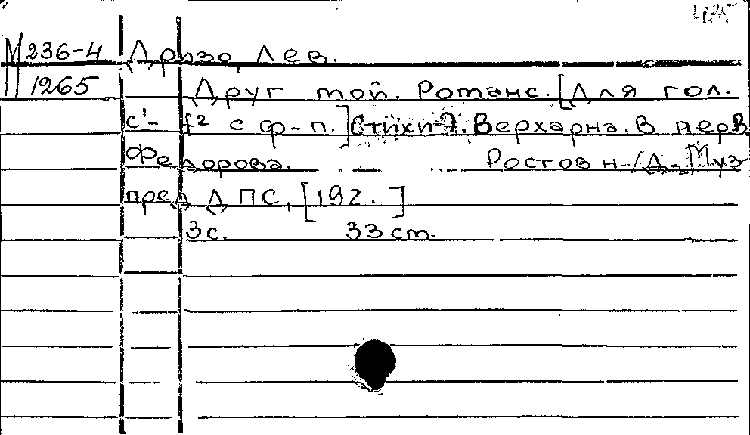 М 236-4 Дризо, Лев.
1265 Друг мой. Романс. [Для гол.
с¹- f² с ф-п.] Стихи Э. Верхарна. В перв.
Федорова. Ростов н-/Д-, Муз
пред ДПС, [192. ]
3 с. 33 ст.